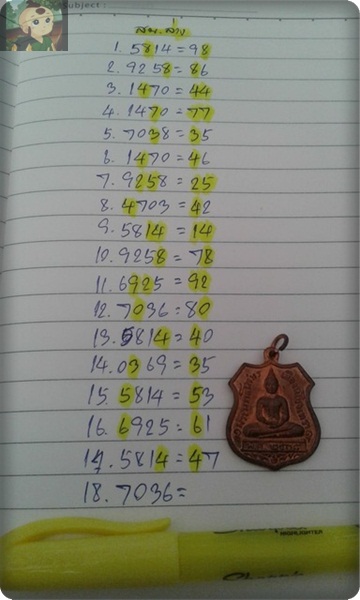 Subject :
สน. ล่าง
1. 5814 = 98
2. 9258 = 86
3. 1470 = 44
4. 1470 = 77
5. 7038 = 35
6. 1470 = 46
7. 9258 = 25
8. 4703 = 42
9. 5814 = 14
10. 9258 = 78
11. 6925 = 92
12. 7036 = 80
13. 5814 = 40
14. 0369 = 35
15. 5814 = 53
16. 6925 = 61
17. 5814 = 47
18. 7036 =
HIGHLIGHTER